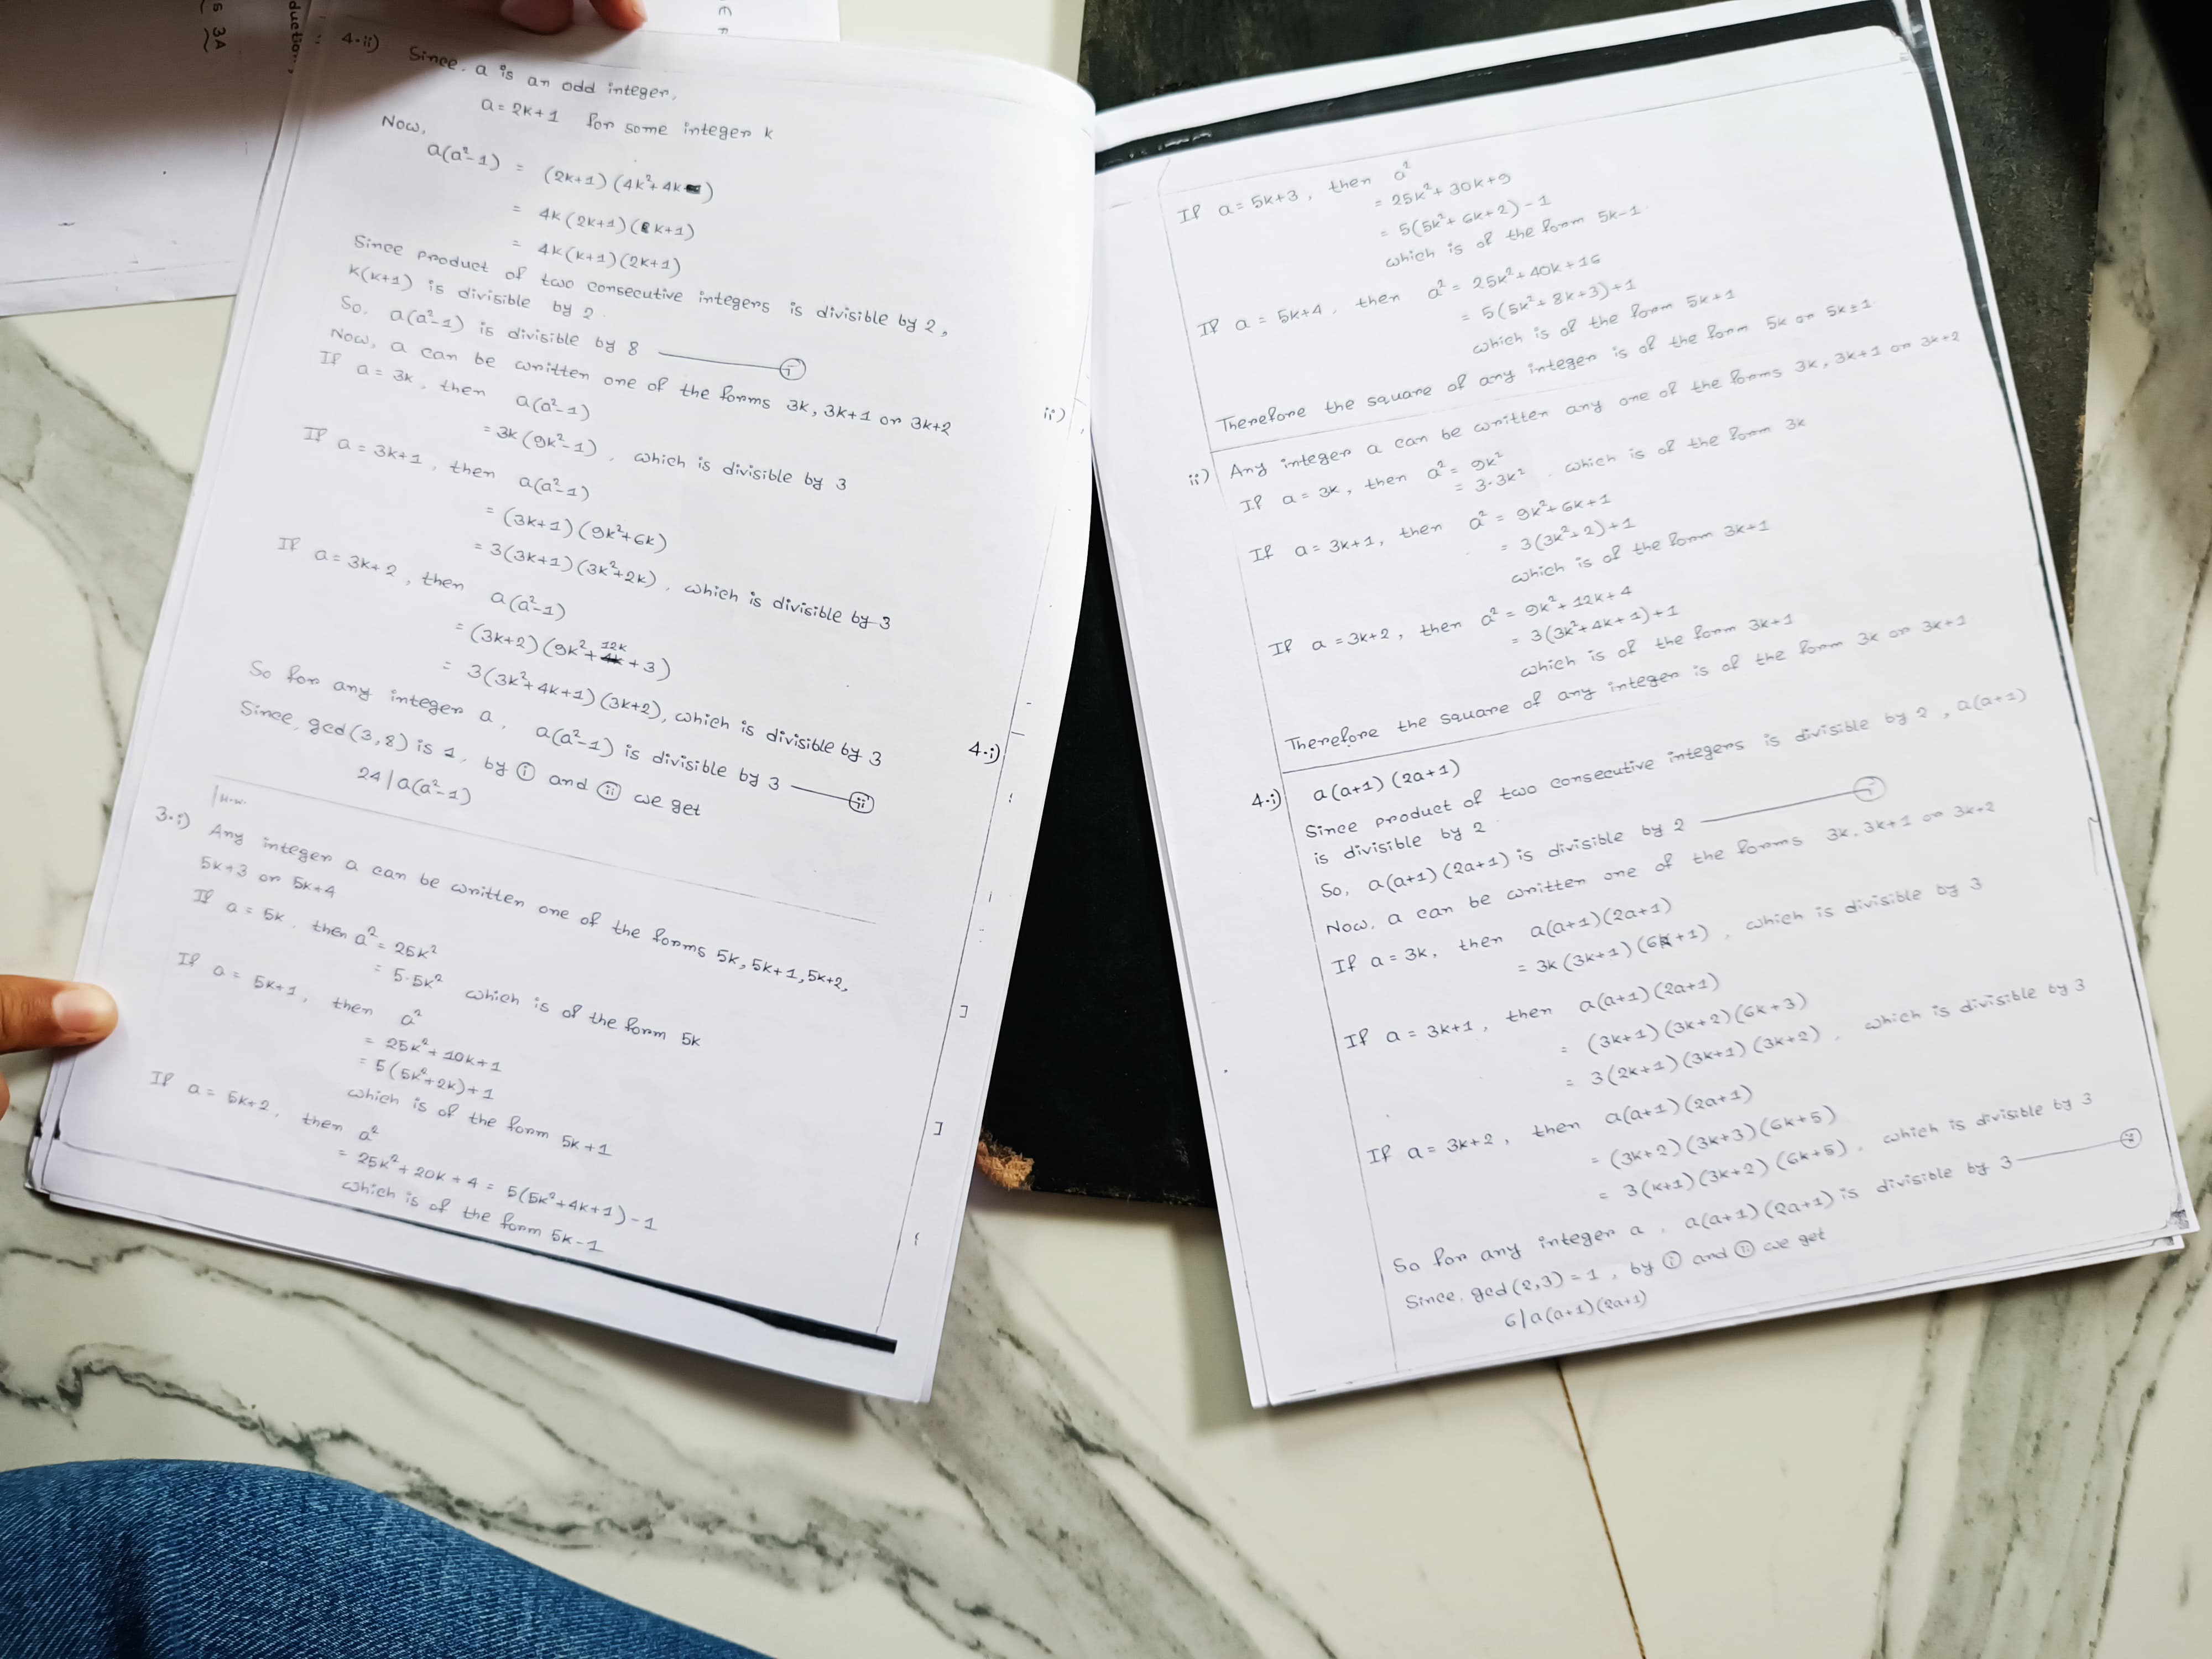 duction,
s 3A
4.ii) Since, a is an odd integer,
a = 2k+1 for some integer k
Now,
a(a²-1) = (2k+1)(4k²+4k)
= 4k(2k+1)(k+1)
= 4k(k+1)(2k+1)
Since product of two consecutive integers is divisible by 2,
k(k+1) is divisible by 2.
So, a(a²-1) is divisible by 8 ——— (i)
Now, a can be written one of the forms 3k, 3k+1 or 3k+2
If a = 3k, then a(a²-1)
= 3k(9k²-1), which is divisible by 3
If a = 3k+1, then a(a²-1)
= (3k+1)(9k²+6k)
= 3(3k+1)(3k²+2k), which is divisible by 3
If a = 3k+2, then a(a²-1)
= (3k+2)(9k²+12k+3)
= 3(3k²+4k+1)(3k+2), which is divisible by 3
So for any integer a, a(a²-1) is divisible by 3 ——— (ii)
Since, gcd(3,8) is 1, by (i) and (ii) we get
24 | a(a²-1)
H.W.
3.i) Any integer a can be written one of the forms 5k, 5k+1, 5k+2,
5k+3 or 5k+4
If a = 5k, then a² = 25k²
= 5.5k² which is of the form 5k
If a = 5k+1, then a²
= 25k²+10k+1
= 5(5k²+2k)+1
which is of the form 5k+1
If a = 5k+2, then a²
= 25k²+20k+4 = 5(5k²+4k+1)-1
which is of the form 5k-1
ii)
4.i)
If a = 5k+3, then a²
= 25k²+30k+9
= 5(5k²+6k+2)-1
which is of the form 5k-1.
If a = 5k+4, then a² = 25k²+40k+16
= 5(5k²+8k+3)+1
which is of the form 5k+1
Therefore the square of any integer is of the form 5k or 5k±1.
ii) Any integer a can be written any one of the forms 3k, 3k+1 or 3k+2
If a = 3k, then a² = 9k²
= 3.3k², which is of the form 3k
If a = 3k+1, then a² = 9k²+6k+1
= 3(3k²+2)+1
which is of the form 3k+1
If a = 3k+2, then a² = 9k²+12k+4
= 3(3k²+4k+1)+1
which is of the form 3k+1
Therefore the square of any integer is of the form 3k or 3k+1
4.i) a(a+1)(2a+1)
Since product of two consecutive integers is divisible by 2, a(a+1)
is divisible by 2
So, a(a+1)(2a+1) is divisible by 2 ——— (i)
Now, a can be written one of the forms 3k, 3k+1 or 3k+2
If a = 3k, then a(a+1)(2a+1)
= 3k(3k+1)(6k+1), which is divisible by 3
If a = 3k+1, then a(a+1)(2a+1)
= (3k+1)(3k+2)(6k+3)
= 3(2k+1)(3k+1)(3k+2), which is divisible by 3
If a = 3k+2, then a(a+1)(2a+1)
= (3k+2)(3k+3)(6k+5)
= 3(k+1)(3k+2)(6k+5), which is divisible by 3
So for any integer a, a(a+1)(2a+1) is divisible by 3 ——— (ii)
Since, gcd(2,3) = 1, by (i) and (ii) we get
6 | a(a+1)(2a+1)